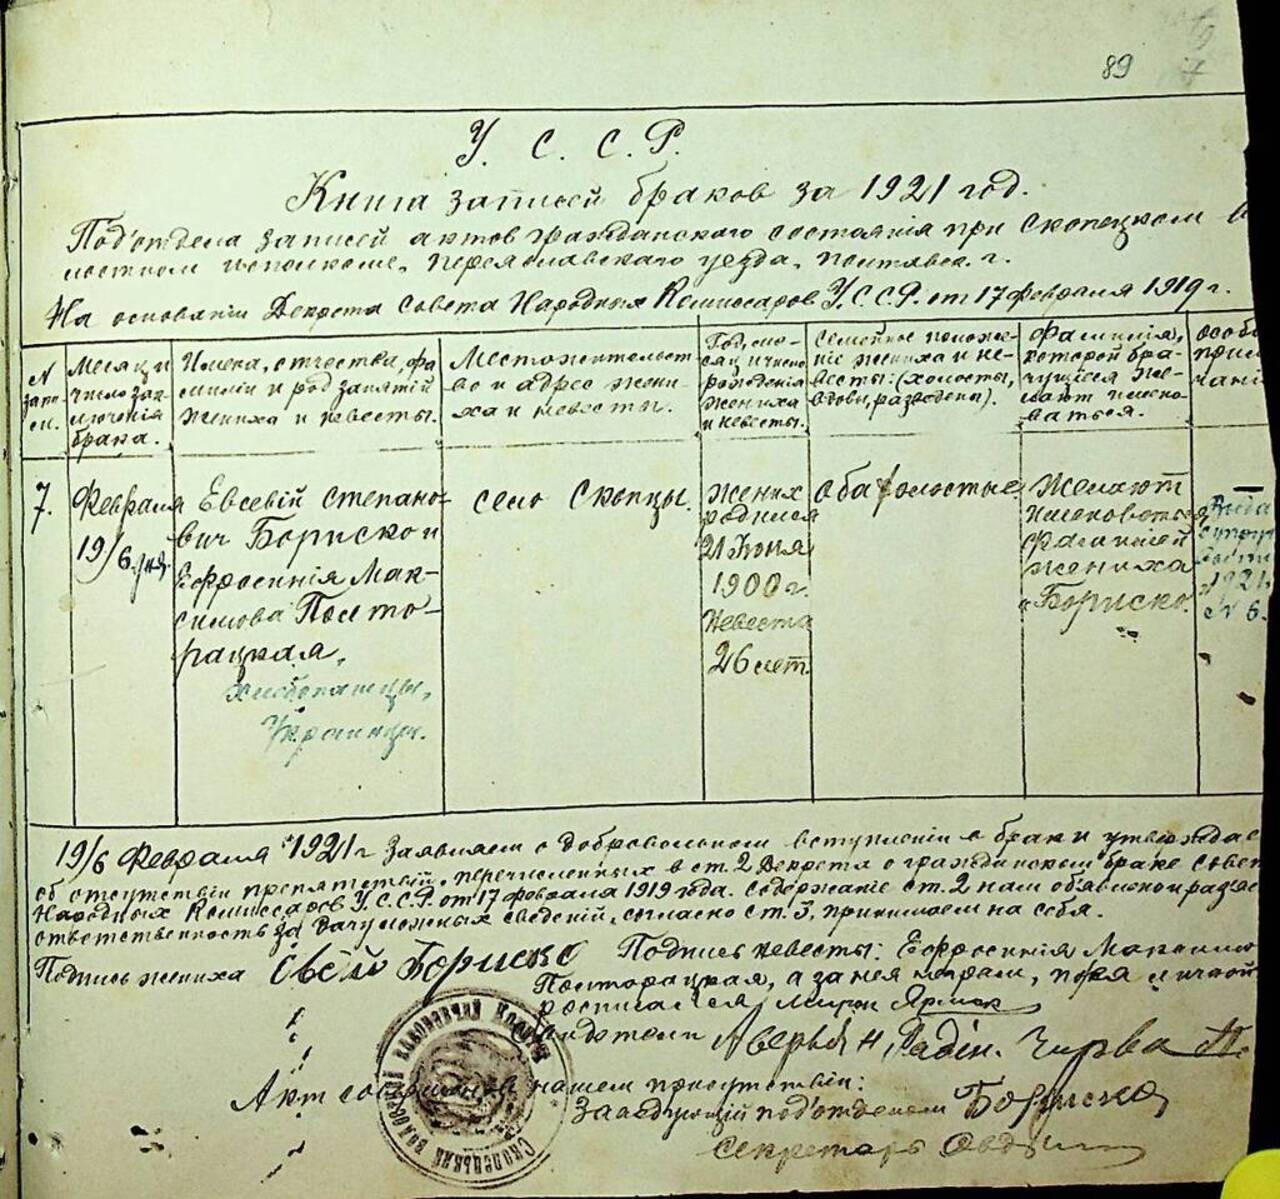 89
У. С. С. Р.
Книга записей браков за 1921 год.
Под'отдела записей актов гражданского состоянія при Скопецком
лостном исполкоме, Переяславскаго уезда, Полтавск. г.
На основаніи Декрета Совета Народных Комиссаров У.С.С.Р. от 17 февраля 1919 г.
N запи- си.
Месяц и число зак- лючения брака.
Имена, отчества, фа- милии и род занятій жениха и невесты.
Местожительст- во и адрес жени- ха и невесты.
Год, ме- сяц и число рожденія жениха и невесты.
Семейное положе- ніе жениха и не- весты: (холосты, вдовы, разведены).
Фамилія, которой бра- чущіеся же- лают имено- ваться.
7.
Февраля
19/6
Евсевій Степано-
вич Бориско и
Ефросинія Мак-
симова Полто-
рацкая,
хлебопашцы,
Украинцы.
село Скопцы.
Жених
родился
21 Июня
1900 г.
Невеста
26 лет.
Оба холостые
Желают
именоваться
фамилией
жениха
"Бориско.
1921
N 6.
19/6 Февраля 1921 г Заявляем о добровольном вступлении в брак и утвержда
об отсутствіи препятствій, перечисленных в ст. 2 Декрета о гражданском браке Совет
Народных Комиссаров У.С.С.Р. от 17 февраля 1919 года. Содержаніе ст. 2 нам об'явлено и раз'яс
ответственность за сведений, согласно ст. 3, принимаем на себя.
Подпись жениха Бориско
Подпись невесты: Ефросинія Максимо
Полторацкая, а за нея неграм,
росписался
Акт совершен в нашем присутствіи:
Заведующій под'отделом Бориско
Секретарь